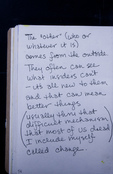 The rooter (who or
whatever it is)
comes from the outside.
They often can see
what insiders can't
- it's all new to them
and that can mean
better things
(usually thru that
difficult mechanism
that most of us dread
I include myself)
called change.